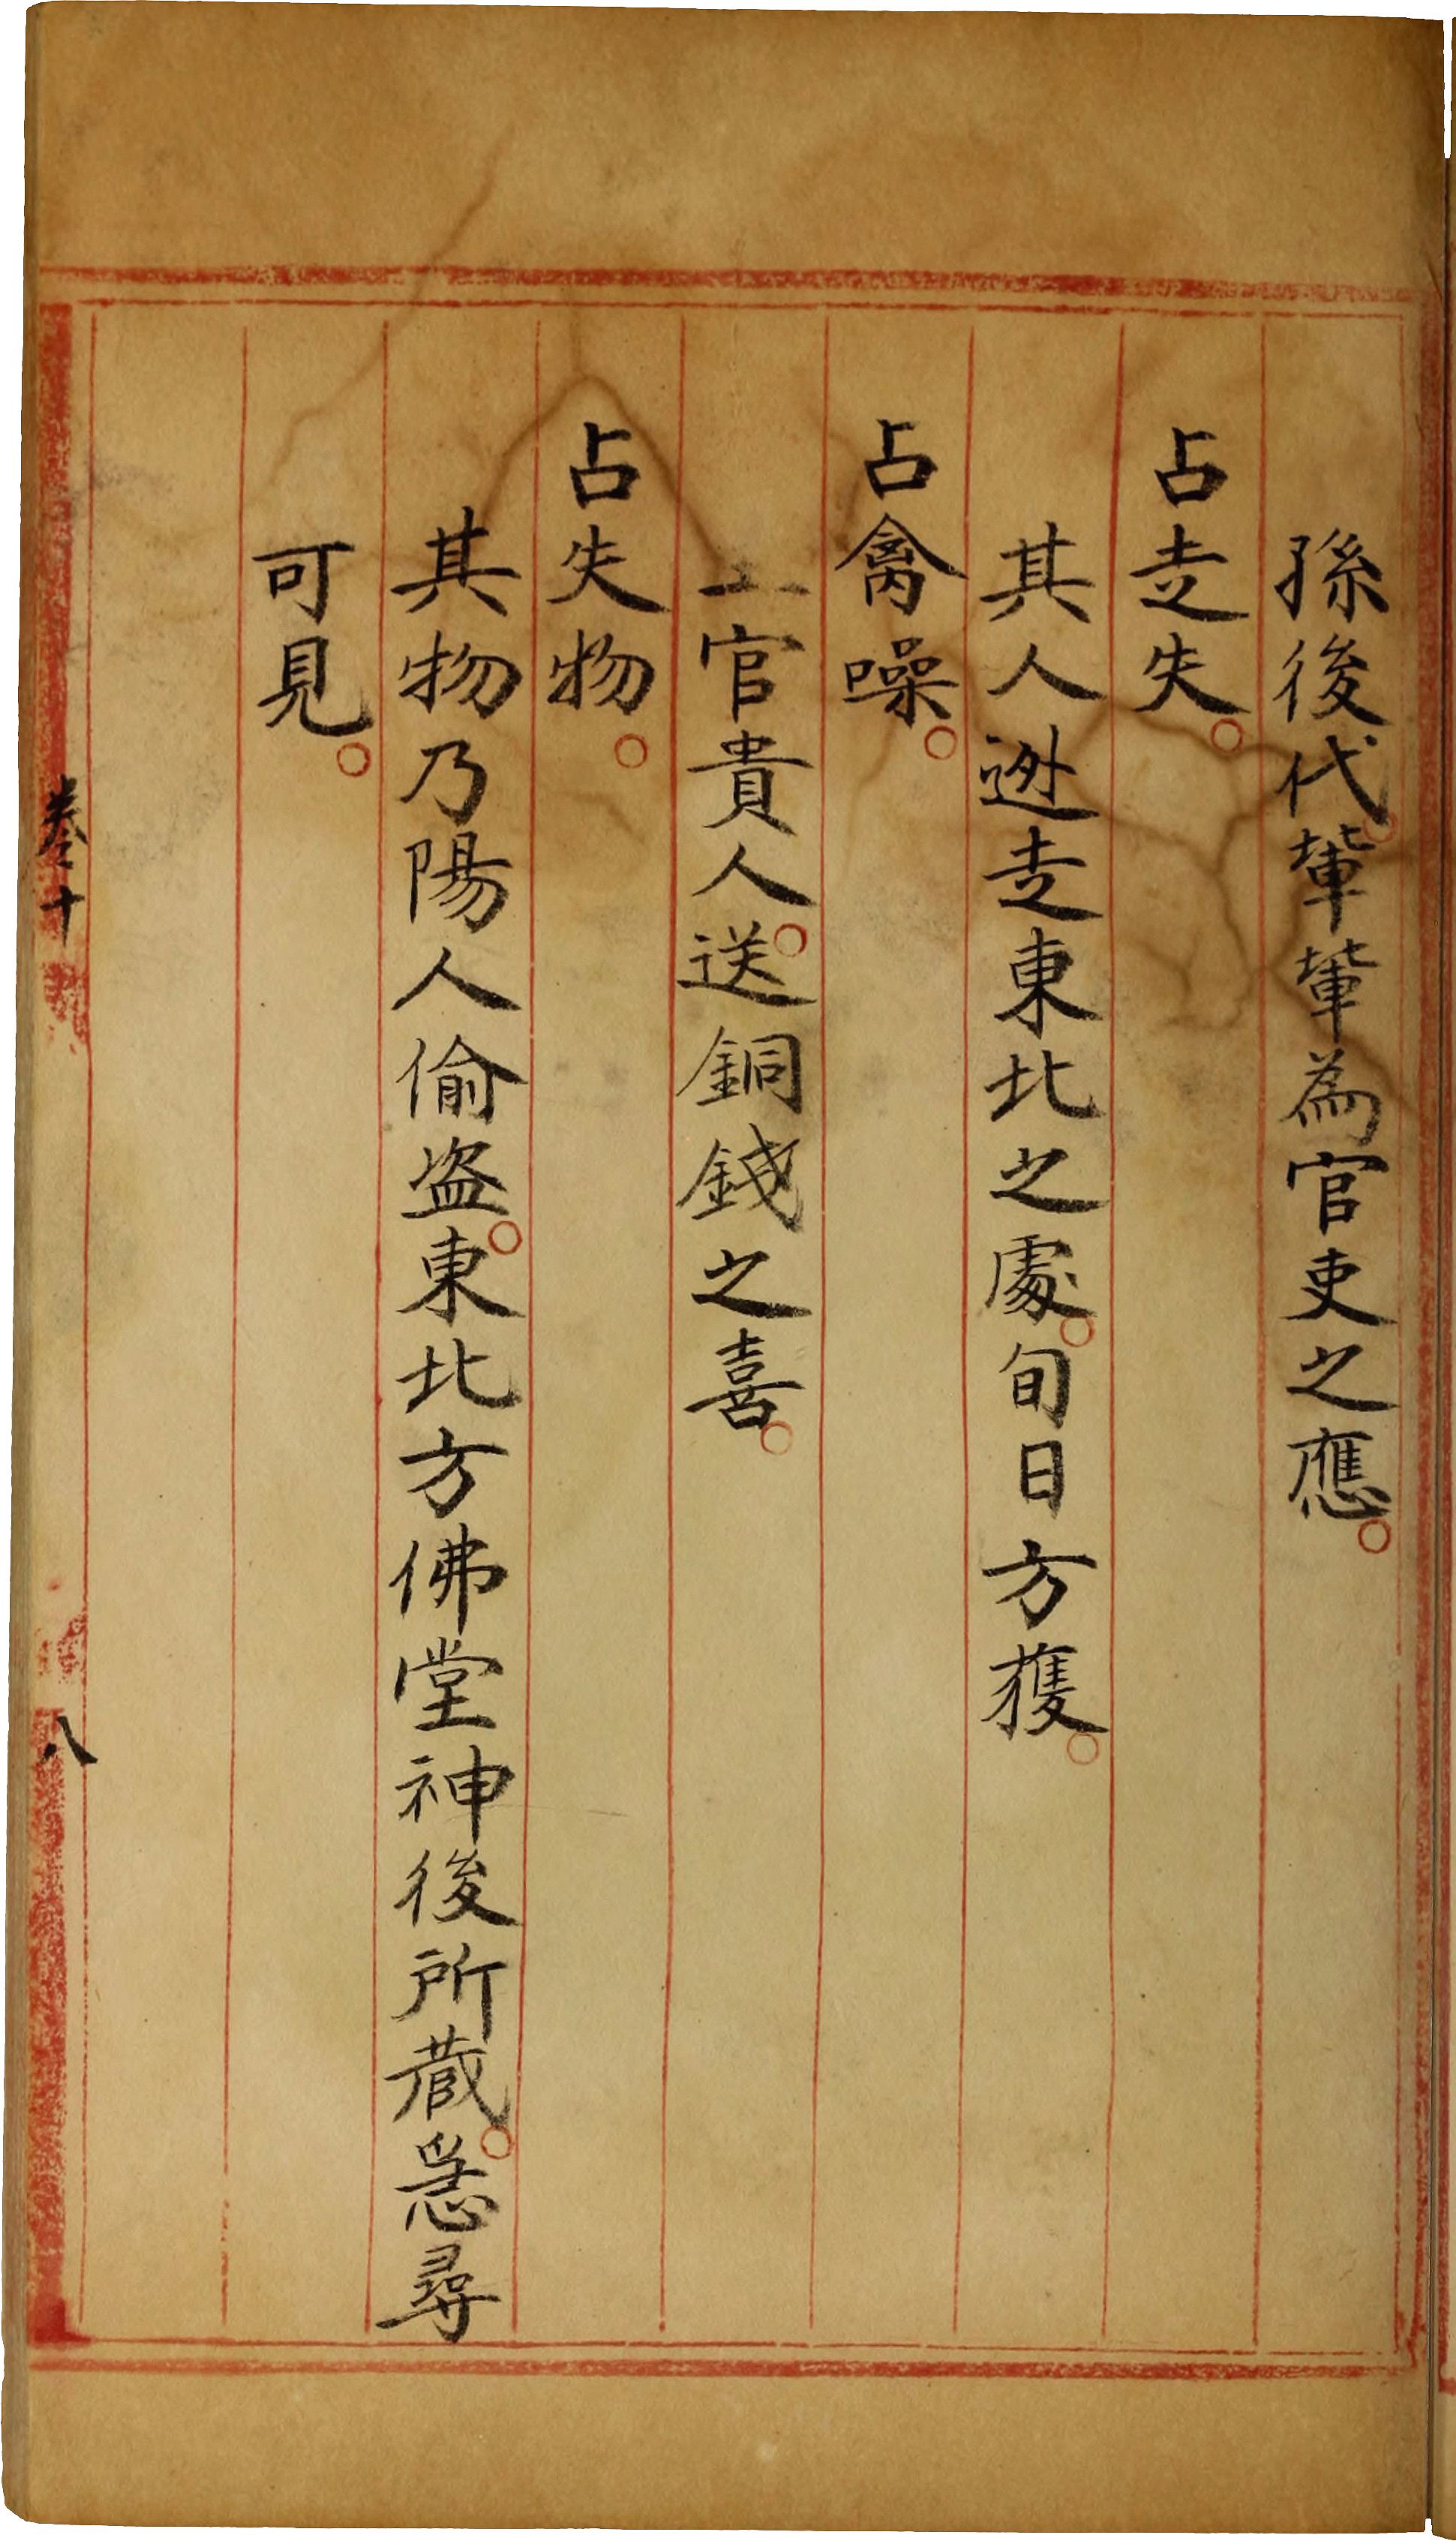 孫後代。軰軰為官吏之應。
占走失。
其人迯走東北之處。旬日方獲。
占禽噪。
官貴人。送銅錢之喜。
占失物。
其物乃陽人偷盗。東北方佛堂神後所藏。急尋
可見。
卷十
八